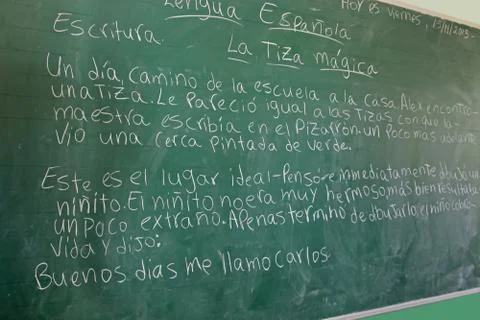 Lengua Española
Hoy es viernes, 13/11/2015
Escritura.
La Tiza mágica
Un día, camino de la escuela a la casa, Alex encontro
una Tiza. Le Pareció igual a las Tizas con que la
maestra escribía en el Pizarrón. un Poco mas adelante
Vio una cerca Pintada de verde.
Este es el lugar ideal-Penso e inmediatamente dibujo un
niñito. El niñito no era muy hermoso mas bien resultaba
un Poco extraño. Apenas termino de dibujarlo, el niño cobro
Vida y dijo:
Buenos dias me llamo carlos